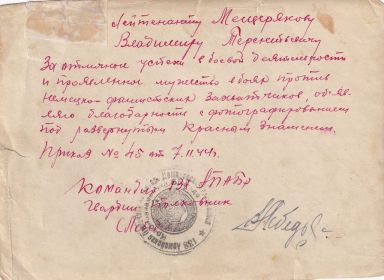 Лейтенанту Мещерякову
Владимиру Терентьевичу
За отличные успехи в боевой деятельности
и проявленное мужество в боях против
немецко-фашистских захватчиков, объяв-
ляю благодарность с фотографированием
под развернутым Красным знаменем.
Приказ № 45 от 7.11.44г.
Командир 138 ПАБр
гвардии полковник